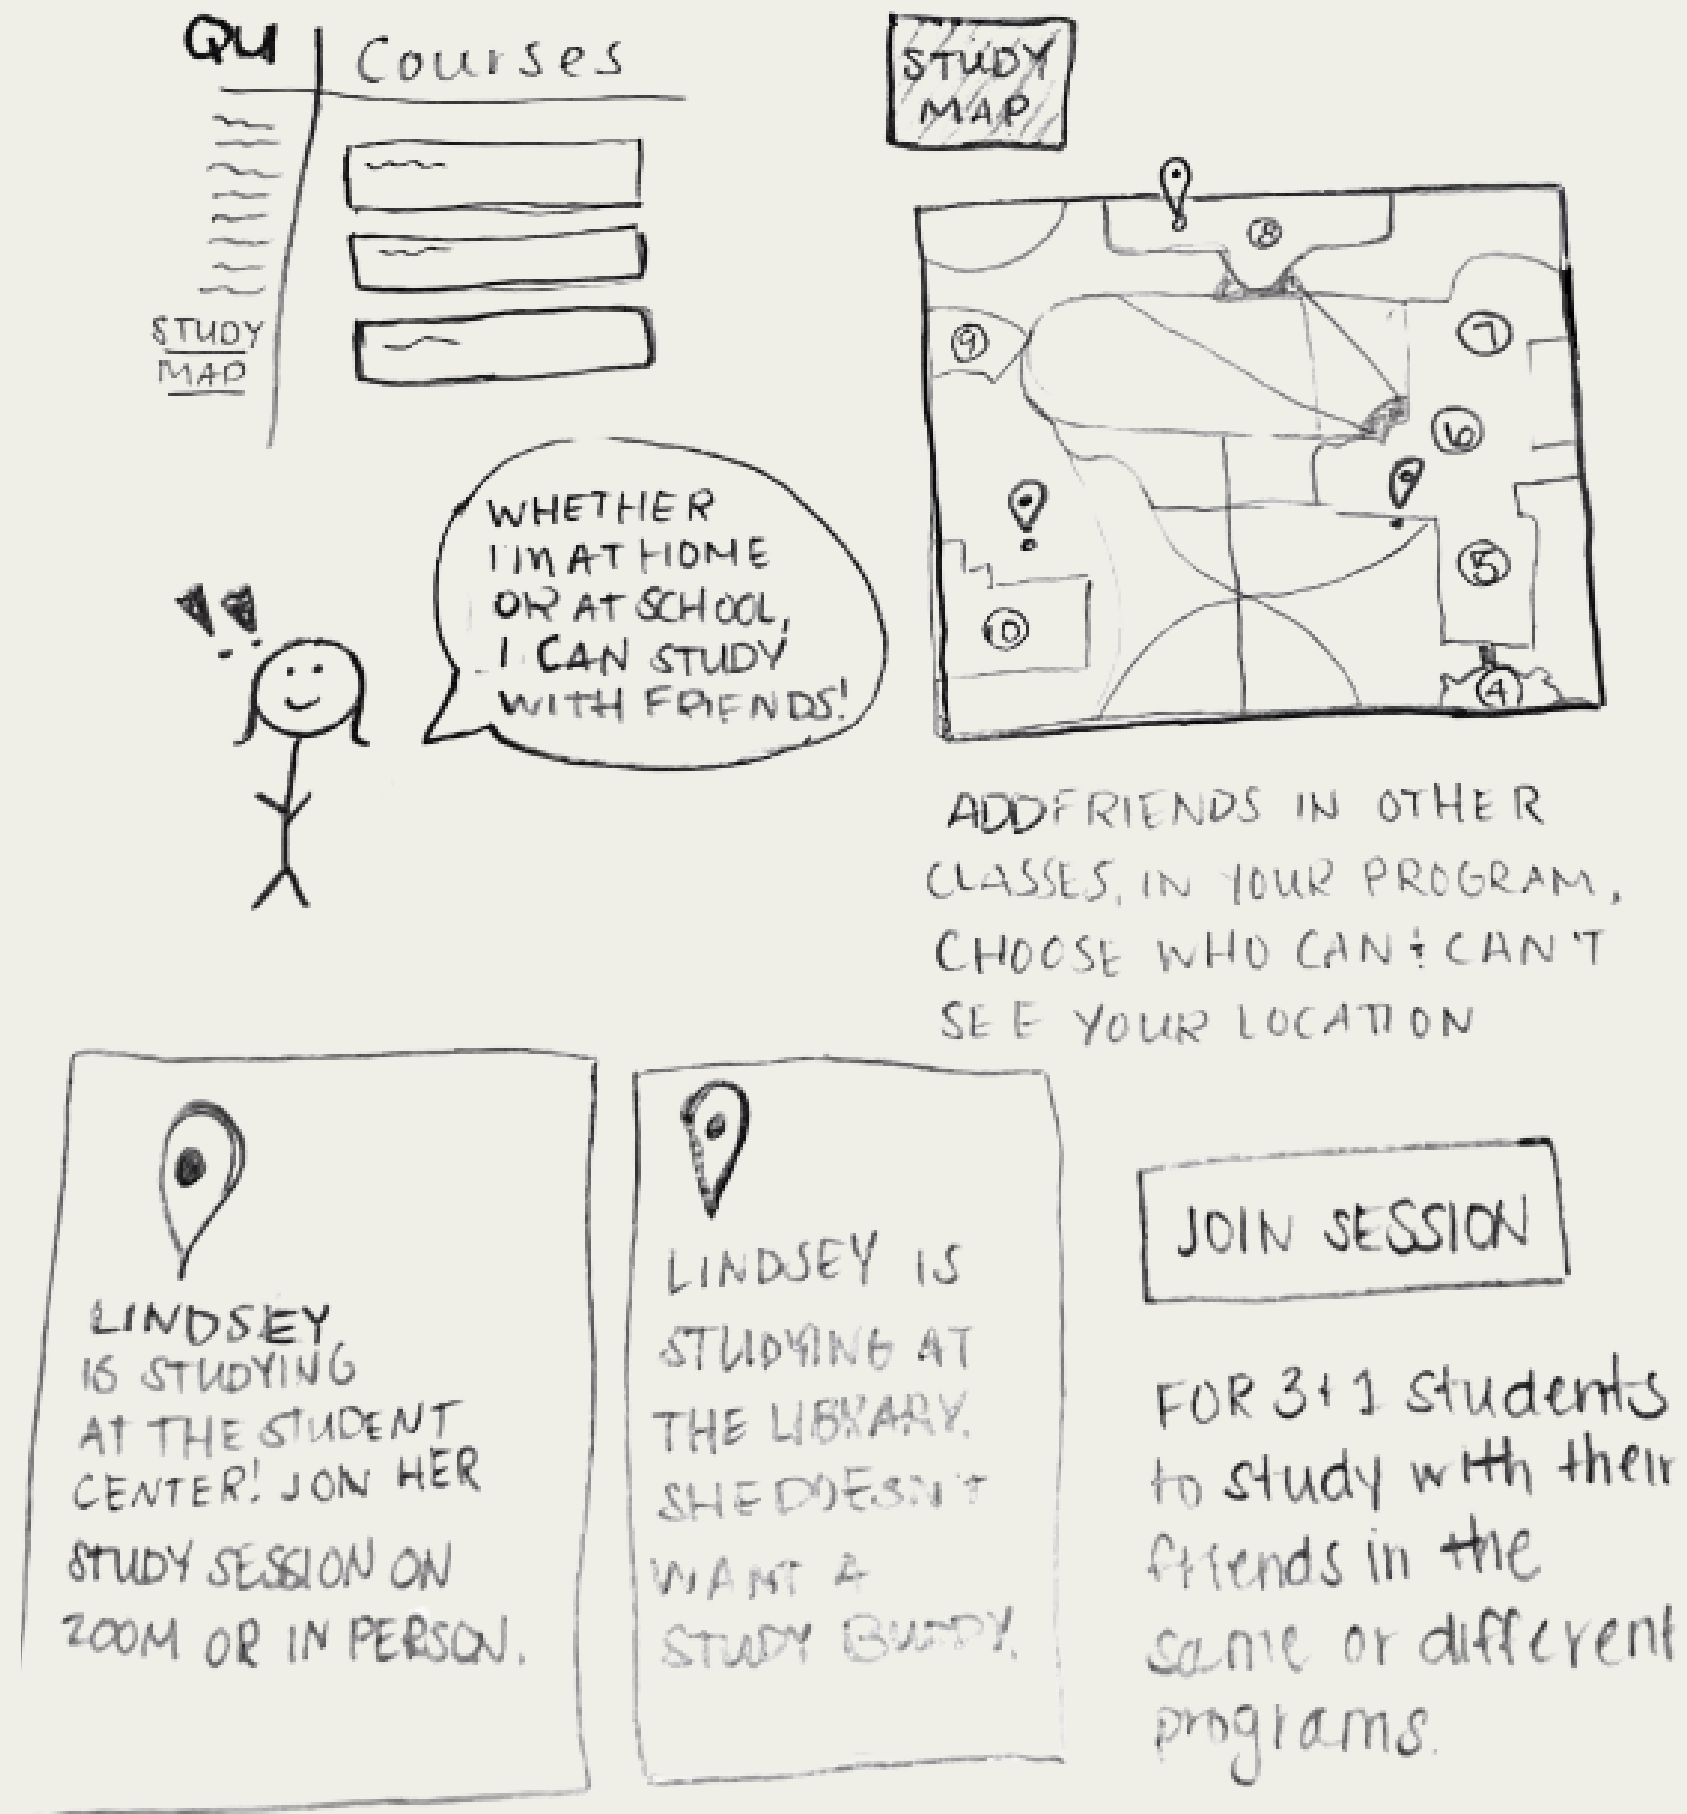 QU
Courses
STUDY
MAP
STUDY
MAP
8
9
7
6
5
10
4
WHETHER
I'M AT HOME
OR AT SCHOOL,
I CAN STUDY
WITH FRIENDS!
ADD FRIENDS IN OTHER
CLASSES, IN YOUR PROGRAM,
CHOOSE WHO CAN & CAN'T
SEE YOUR LOCATION
LINDSEY
IS STUDYING
AT THE STUDENT
CENTER! JOIN HER
STUDY SESSION ON
ZOOM OR IN PERSON.
LINDSEY IS
STUDYING AT
THE LIBRARY.
SHE DOESN'T
WANT A
STUDY BUDDY.
JOIN SESSION
FOR 3+1 students
to study with their
friends in the
same or different
programs.